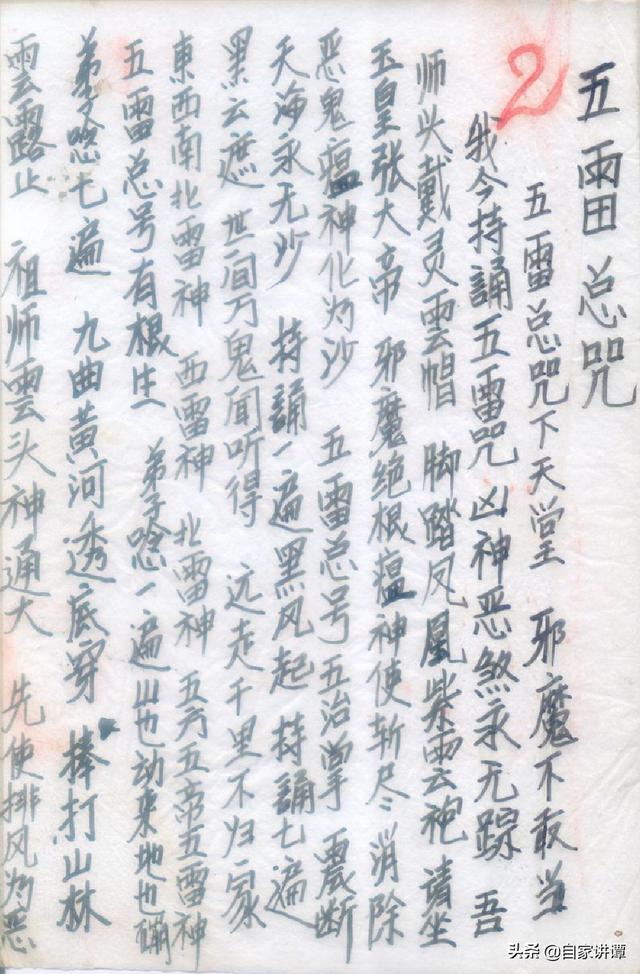 五雷总咒
2
五雷总咒下天堂 邪魔不敢当
我今持誦五雷咒 凶神恶煞永无踪 吾
师头戴灵雲帽 脚踏凤凰紫雲袍 请坐
玉皇张大帝 邪魔绝根瘟神使斩尽消除
恶鬼瘟神化为沙 五雷总号五治掌 震断
天海永无沙 持誦一遍黑风起 持誦七遍
黑云遮 世间万鬼闻听得 远走千里不归家
東西南北雷神 西雷神 北雷神 五方五帝五雷神
五雷总号有根生 弟子唸一遍山也动来地也
弟子唸七遍 九曲黄河透底穿 棒打山林
雲露止 祖师雲头神通大 先使排风为恶
头条 @自家讲谭